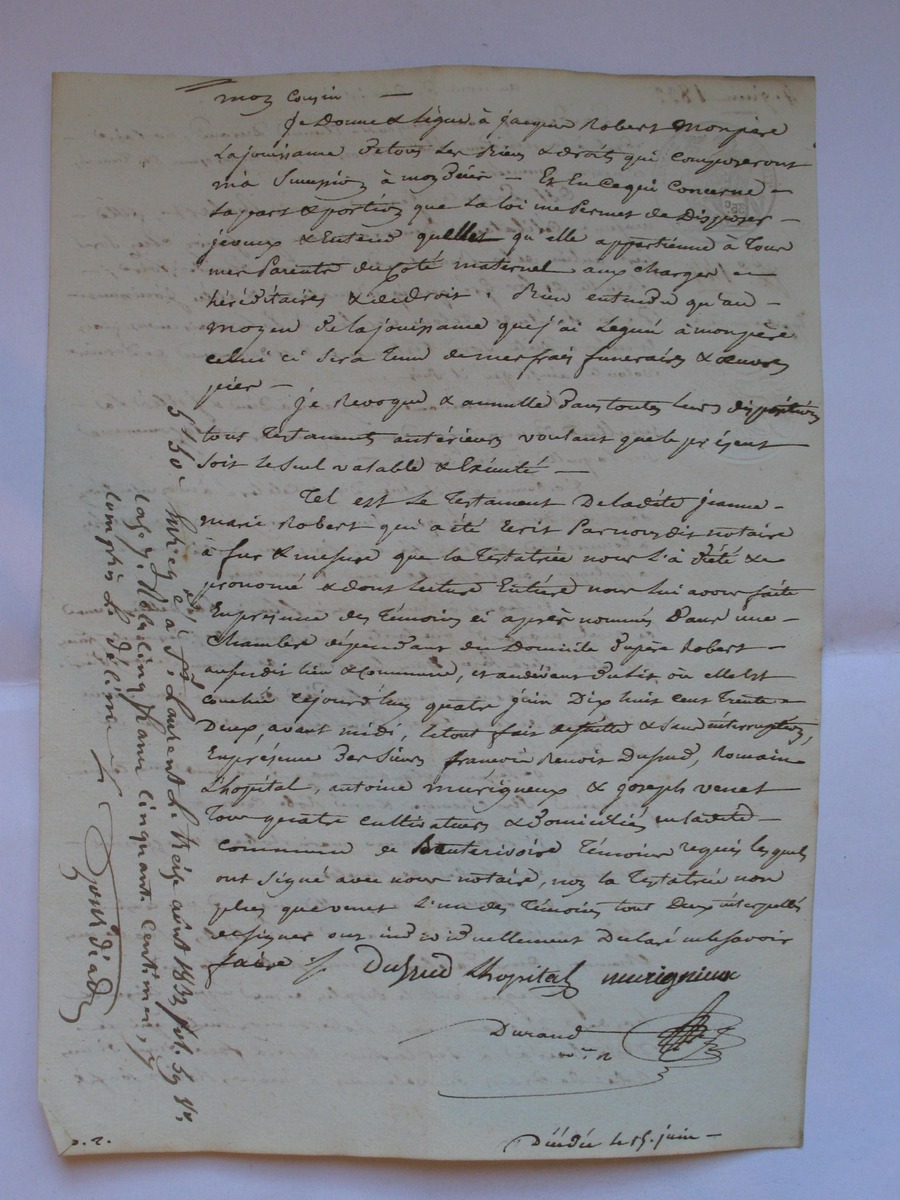 moy cousin —
Je Donne & Légue à jacque Robert monpère
La jouissance De tous Les Biens & droits qui composeront
ma Succession à moy Décès — Et En Ce qui Concerne —
La part & portion que La Loi me Permet de Disposer —
je veux & Entend quelles qu'elle appartienne à Tous
mes Parents du Coté maternel aux charges —
héréditaires & de droit. Bien entendu qu'au —
moyen De la jouissance que j'ai Legué à monpère
celui ci sera Tenu de mes frais funeraires & œuvres
pies —
je Revoque & annulle Dans toutes leurs dispositions
tous Testaments antérieurs voulant que le présent
soit le seul valable & Exécuté —
Tel est Le Testament De ladite jeanne —
marie Robert qui a été Ecrit Par nous dit notaire
à fur & mesure que la Testatrice nous L'à Dicté &
prononcé & dont lecture Entière nous lui avons faite
En présence des Témoins ci après nommés Dans une —
Chambre dépendant du Domicile Dupère Robert —
au susdit lieu & Commune, et au devant Du lit où elle Est
couchée cejourd'huy quatre juin Dix huit cent trente —
Deux, avant midi, le tout fait de suite & sans interruption,
En présence Des Sieurs francois Benoit Dusud, Romain
Lhopital, antoine murigneux & joseph venet
Tous quatre cultivateurs & Domiciliés en ladite —
commune de Bauterivoire Témoins requis lesquels
ont signé avec nous notaire, non la Testatrice non
plus que venet L'un des Témoins tous Deux interpellés
de signer ont individuellement Declaré ne le savoir
faire ./. Dusud Lhopital murigneux
Durand
n.re
Dictée le 15. juin —
5f 50c Enreg.é à St Laurent Le treize août 1832, fol. 59
case 7. Reçu cinq francs cinquante Centimes, y
compris Le Décime ./.